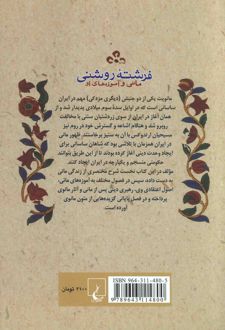 فرشتهٔ روشنی
مانی و آموزه‌های او
مانویت یکی از دو جنبش (دیگری مزدکی) مهم در ایران
ساسانی است که در اوایل سدهٔ سوم میلادی پدیدار شد. از
همان آغاز در ایران از سوی زردشتیان سنتی با مخالفت
روبرو شد و هنگام اشاعه و گسترش خود در روم نیز
مسیحیان ارتدوکس با آن به ستیز برخاستند. ظهور مانی
در ایران همزمان با تلاشی بود که شاهان ساسانی برای
ایجاد وحدت دینی آغاز کرده بودند تا از این طریق بتوانند
حکومتی منسجم و یکپارچه در ایران ایجاد کنند.
مؤلف در این کتاب نخست شرح مختصری از زندگی مانی
به دست داده، سپس در فصول مختلف به آموزه‌های مانی،
اصول اعتقادی وی، رهبری دینی پس از مانی و آثار مانوی
پرداخته و در فصل پایانی گزیده‌هایی از متون مانوی
آورده است.
ISBN 964-311-480-5
9 789643 114800
۲۱۰۰ تومان